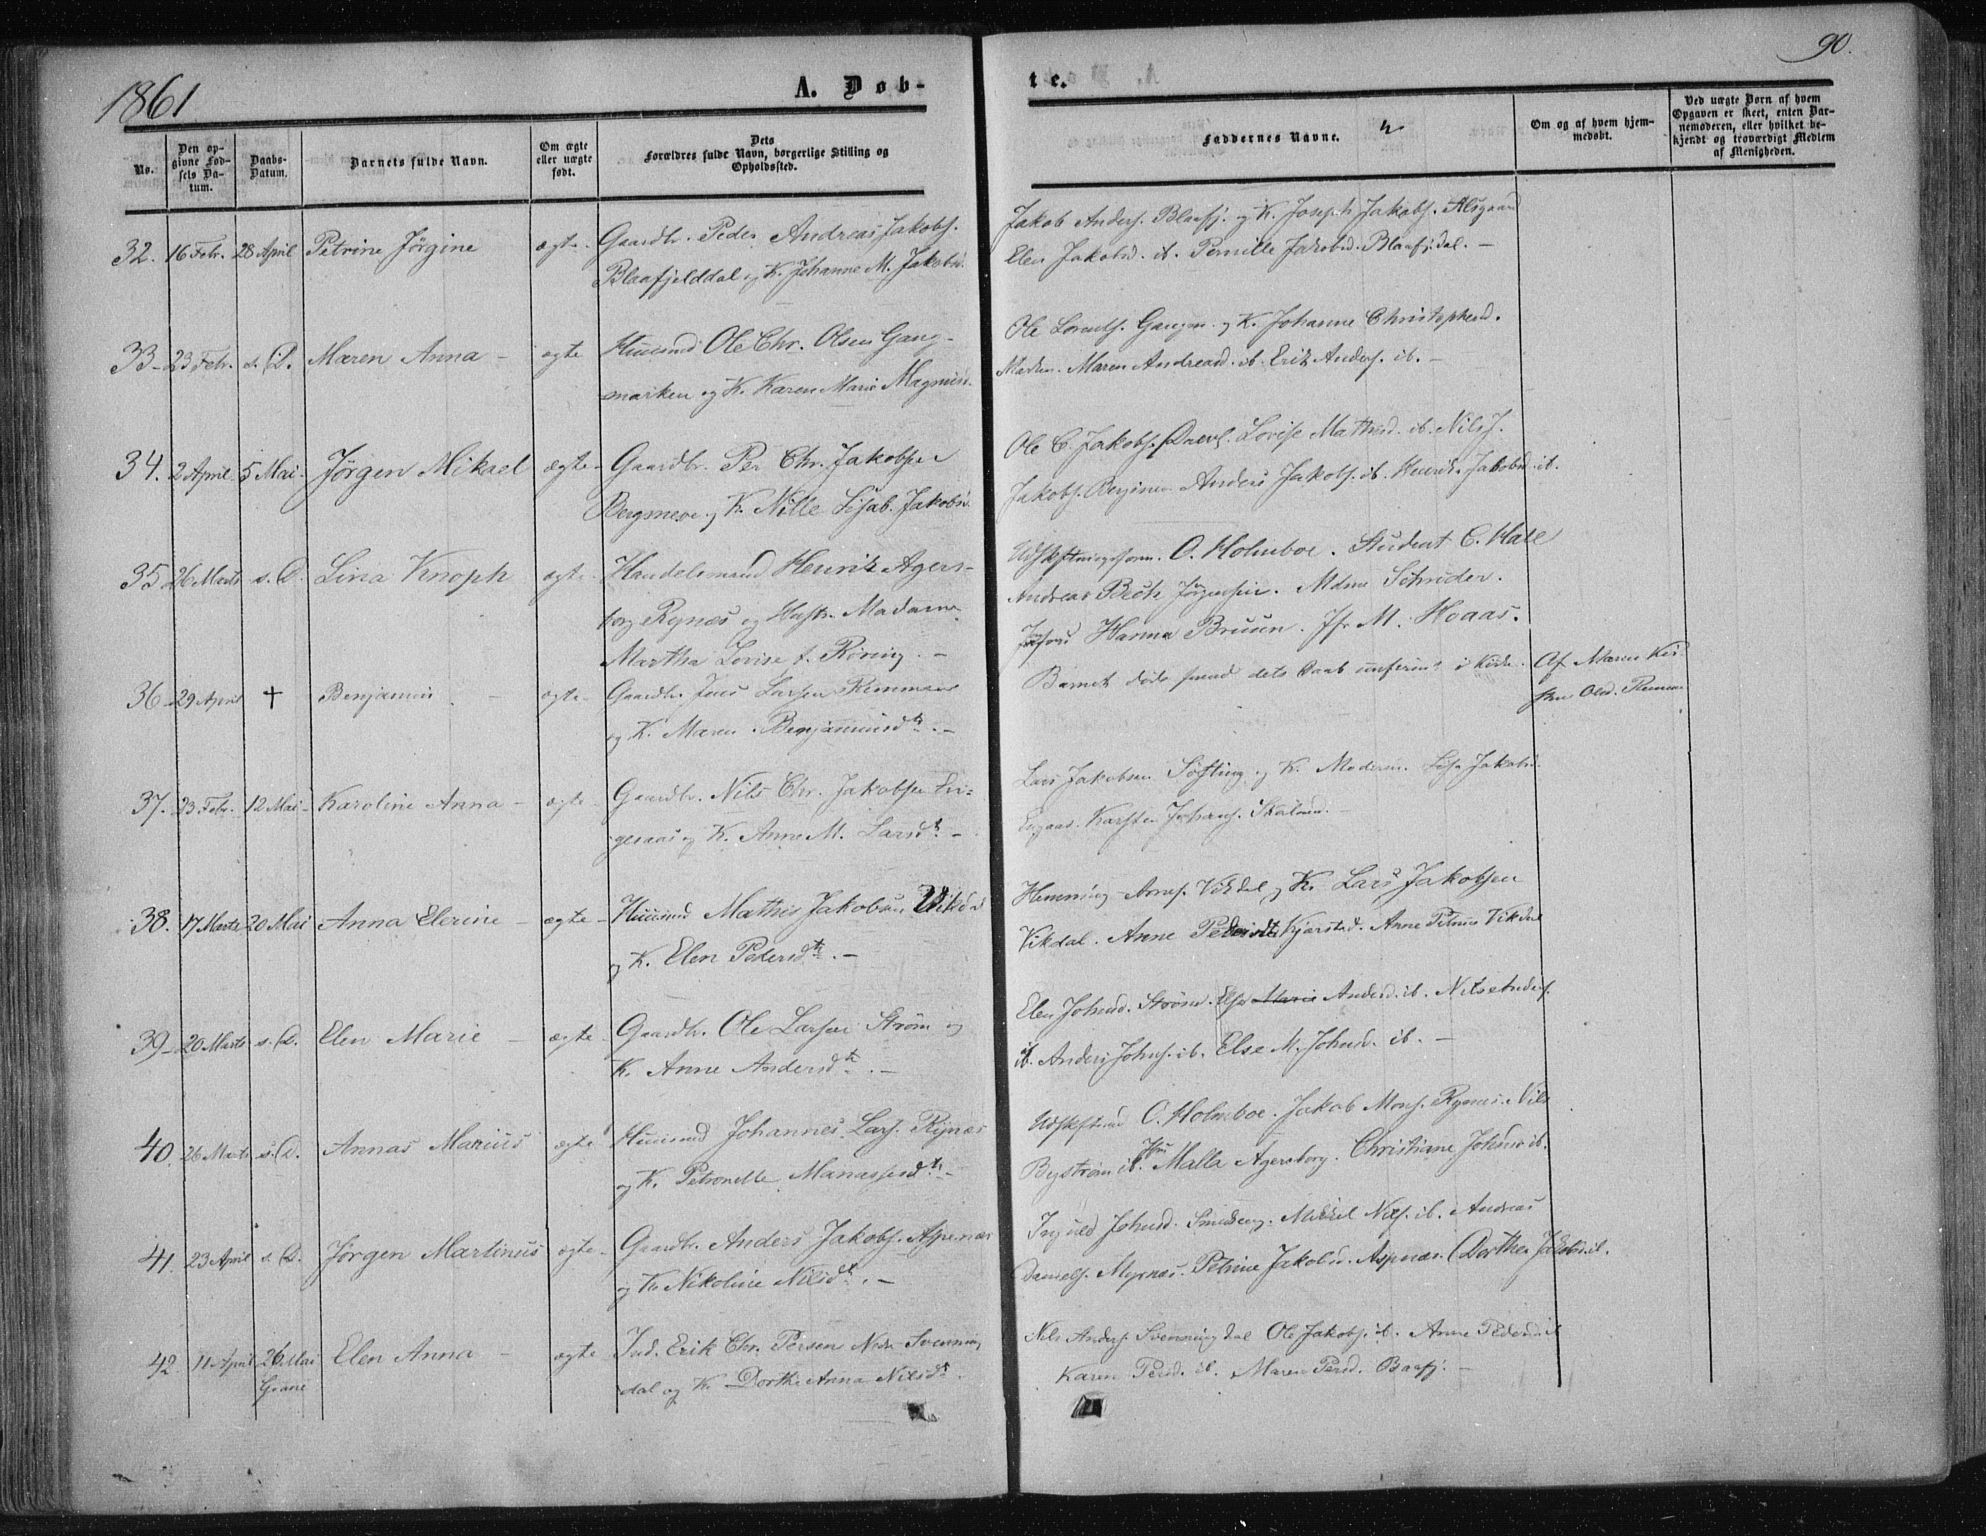 1861
A. Døb-
te.
90.
No.
Den op-
givne Fød-
sels Da-
tum.
Daabs-
Datum.
Barnets fulde Navn.
Om ægte
eller uægte
født.
Dets
Forældres fulde Navn, borgerlige Stilling og
Opholdssted.
Faddernes Navne.
Om og af hvem hjem-
medøbt.
Ved uægte Børn af hvem
Opgaven er skeet, enten Bar-
nemoderen, eller hvilket be-
kjendt og troværdigt Medlem
af Menigheden.
32. 16 Febr. 28 April Petrine Jørgine ægte Gaardbr. Peder Andreas Jakobs.
Blaafjelddal og K. Johanne M. Jakobsd.
Jakob Anders. Blaafj. og K. Joseph Jakobs. Alsgaard
Elen Jakobsd. ib. Pernille Jakobsd. Blaafjdal. –
33 – 23 Febr. s. D. Maren Anna – ægte Huusmd Ole Chr. Olsen Gang-
marken og K. Karen Marie Magnusd.
Ole Lorents. Gangm. og K. Johanne Christophersd.
Maren Andreasd. ib. Erik Anders. ib. –
34. 2 April 5 Mai. Jørgen Mikael ægte – Gaardbr. Per Chr. Jakobsen
Bergsnev og K. Nille Lisab. Jakobsd.
Ole C. Jakobs. Lovise Mathisd. ib. Nils J.
Jakobs. Anders Jakobs. ib. Henrik. Jakobsd. ib.
35 26 Marts s. D. Lina Knoph ægte Handelsmand Henrik Agers-
borg Rynæs og Hustr. Madame
Martha Lovise f. Røring. –
O. Holmboe. Student C. Hall
Andreas Beck Jørgensen. Mdme Schrøder.
Jomfrue Hanna Bruun. Jfr M. Hoaas.
36 – 29 April † Benjamin – ægte – Gaardbr. Jens Larsen Remmen
og K. Maren Benjaminsdtr. –
Barnet døde forend dets Daab i Kirken.
Af Maren Kir-
stine Olsd. Remmen
37. 23 Febr. 12 Mai – Karoline Anna – ægte – Gaardbr. Nils Chr. Jakobsen En-
geraas og K. Anne M. Larsdtr. –
Lars Jakobsen Søfting og K. Moderen. Lise Jakobsd.
Engaas. Karsten Johans. Skalmd. –
38. 17 Marts 20 Mai Anna Elerine – ægte – Huusmd Mathis Jakobsen Vikdal
og K. Elen Pedersdtr. –
Hemming Arns. Vikdal og K. Lars Jakobsen
Vikdal. Anne Pedersdtr Kjærstad. Anne Petrine Vikdal
39 – 20 Marts s. D. Elen Marie – ægte – Gaardbr. Ole Larsen Strøm og
K. Anne Andersdtr. –
Elen Johnsd. Strøm. Else Marie Andersd. ib. Nils Anders.
ib. Anders Johns. ib. Else M. Johnsd. ib. –
40. 26 Marts s. D. Annas Marius ægte Huusmd Johannes Lars. Rynæs
og K. Petronelle Manassesdtr. –
O. Holmboe. Jakob Mons. Rynæs. Nils
Bystrøm ib. Jfru Malla Agersborg. Christiane Johnsd ib.
41. 23 April s. D. Jørgen Martinus ægte – Gaardbr. Anders Jakobs. Aspenæs
og K. Nikoline Nilsdtr. –
Johnsd. Smedseng. Mikkel Nils. ib. Andreas
Daniels. Myrnæs. Petrine Jakobsd. Aspnæs. Dorthea Jakobsd. ib.
42. 11 April 26 Mai Elen Anna – ægte Ind. Erik Chr. Persen Nedr. Svenning-
Grane
dal og K. Dorthe Anna Nilsdtr.
Nils Anders. Svenningdal Ole Jakobs. ib. Anne Pedersd. ib
Karen Persd. ib. Maren Persd. Baafj. –